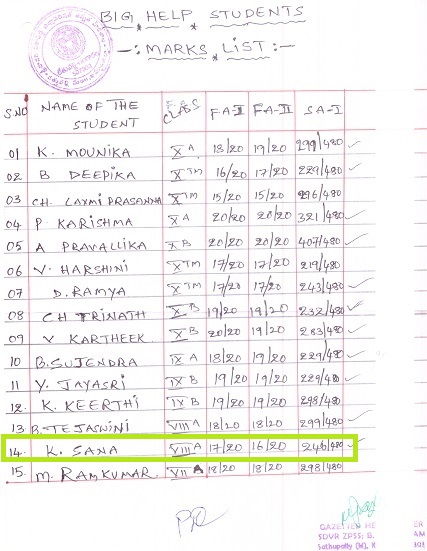 BIG HELP STUDENTS
-: MARKS LIST :-
S.NO NAME OF THE STUDENT CLASS FA-I FA-II SA-I
01 K. MOUNIKA X A 18/20 19/20 299/480
02 B DEEPIKA X TM 16/20 17/20 229/480
03 CH LAXMI PRASANNA X TM 15/20 15/20 296/480
04 P KARISHMA X A 20/20 20/20 321/480
05 A PRAVALLIKA X B 20/20 20/20 407/480
06 V. HARSHINI X TM 17/20 17/20 219/480
07 D. RAMYA X TM 17/20 17/20 243/480
08 CH TRINATH X B 19/20 19/20 232/480
09 V KARTHEEK X B 20/20 19/20 283/480
10 B. SUJENDRA IX A 18/20 19/20 229/480
11 Y. JAYASRI IX B 19/20 19/20 229/480
12. K. KEERTHI IX B 19/20 19/20 298/480
13. B. TEJASWINI VIII A 18/20 18/20 299/480
14. K. SANA VIII A 17/20 16/20 246/480
15. M. RAMKUMAR VII A 18/20 18/20 298/480
SDVR ZPSS; B.
Sathupally (M),